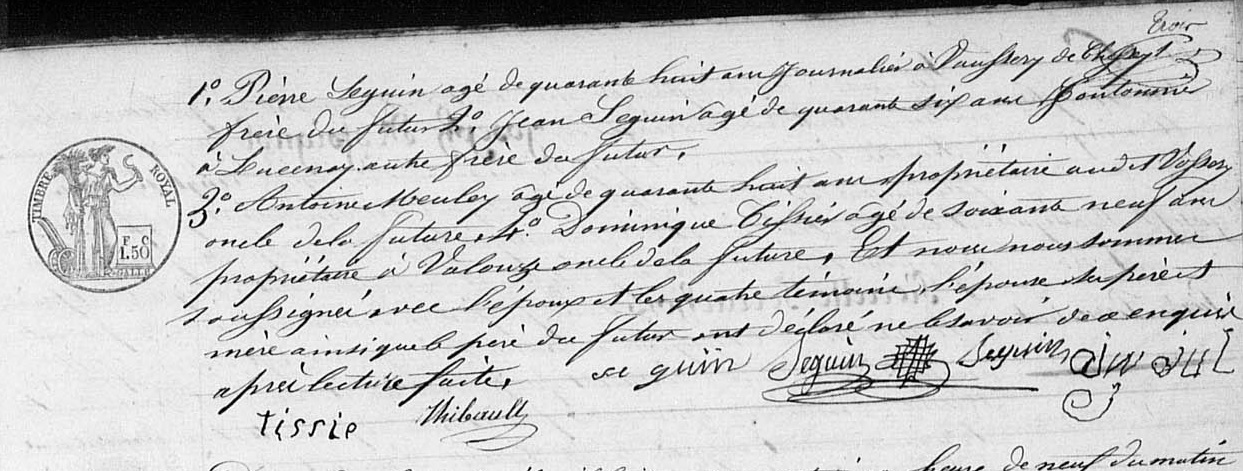 Trois
1.° Pierre Seguin agé de quarante huit ans Journalier à Vaussery de
frère du futur 2.° Jean Seguin agé de quarante six ans
à Lucenay autre frère du futur,
3.° Antoine Meuley agé de quarante huit ans propriétaire audit Vossery
oncle de la future, 4.° Dominique Tissier agé de soixante neuf ans
propriétaire à Valouze oncle de la future, Et nous nous sommes
soussignés avec l'époux et les quatre témoins, l'épouse ses père et
mère ainsi que le père du futur ont déclaré ne le savoir de ce enquis
après lecture faite,
se guin Seguin Seguin
TIMBRE ROYAL
F. C
1.50
tissie Thibault
heure de neuf du matin